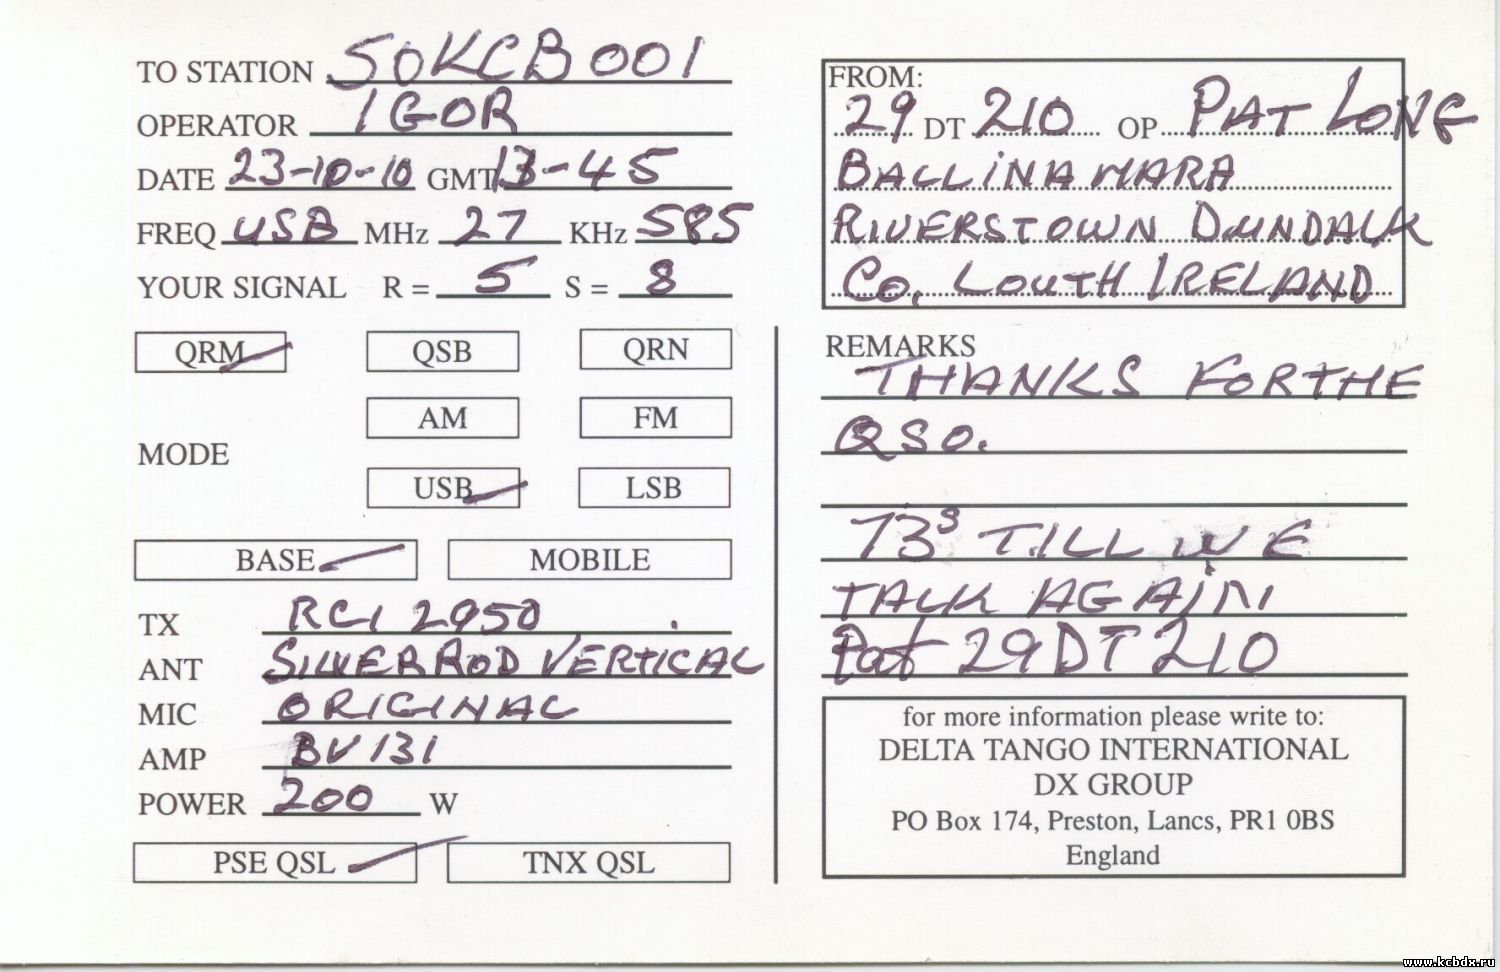 TO STATION 50KCB001
OPERATOR IGOR
DATE 23-10-10 GMT 13-45
FREQ USB MHz 27 KHz 585
YOUR SIGNAL R = 5 S = 8
QRM QSB QRN
AM FM
MODE
USB LSB
BASE MOBILE
TX RCI 2950
ANT SILVERROD VERTICAL
MIC ORIGINAL
AMP BV 131
POWER 200 W
PSE QSL TNX QSL
FROM:
29 DT 210 OP PAT LONG
BALLINAMARA
RIVERSTOWN DUNDALK
Co. LOUTH IRELAND
REMARKS
THANKS FOR THE
QSO.
73s TILL WE
TALK AGAIN
Pat 29 DT 210
for more information please write to:
DELTA TANGO INTERNATIONAL
DX GROUP
PO Box 174, Preston, Lancs, PR1 0BS
England
www.kcbdx.ru